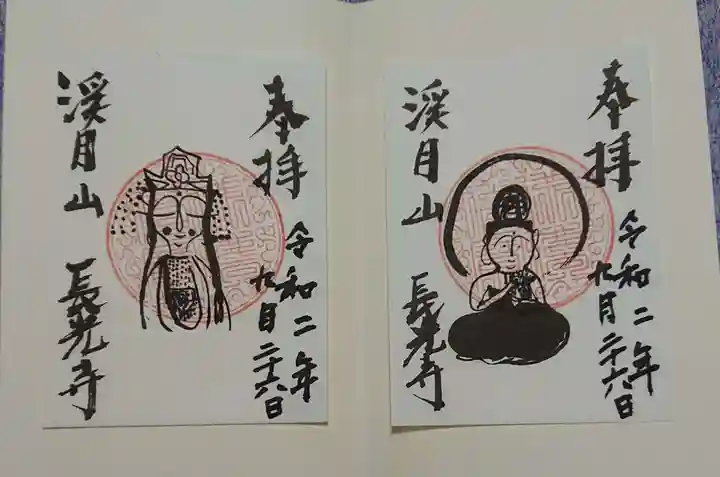 奉拝
令和二年
九月二十六日
渓月山 長光寺
奉拝
令和二年
九月二十六日
渓月山 長光寺